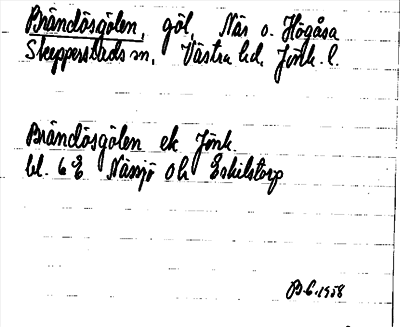 Brändösgölen, göl, Näs o. Högåsa
Skepperstads sn, Västra hd, Jönk. l.
Brändösgölen ek Jönk.
bl. 6 E Nässjö Oh Eskilstorp
B.C. 1958